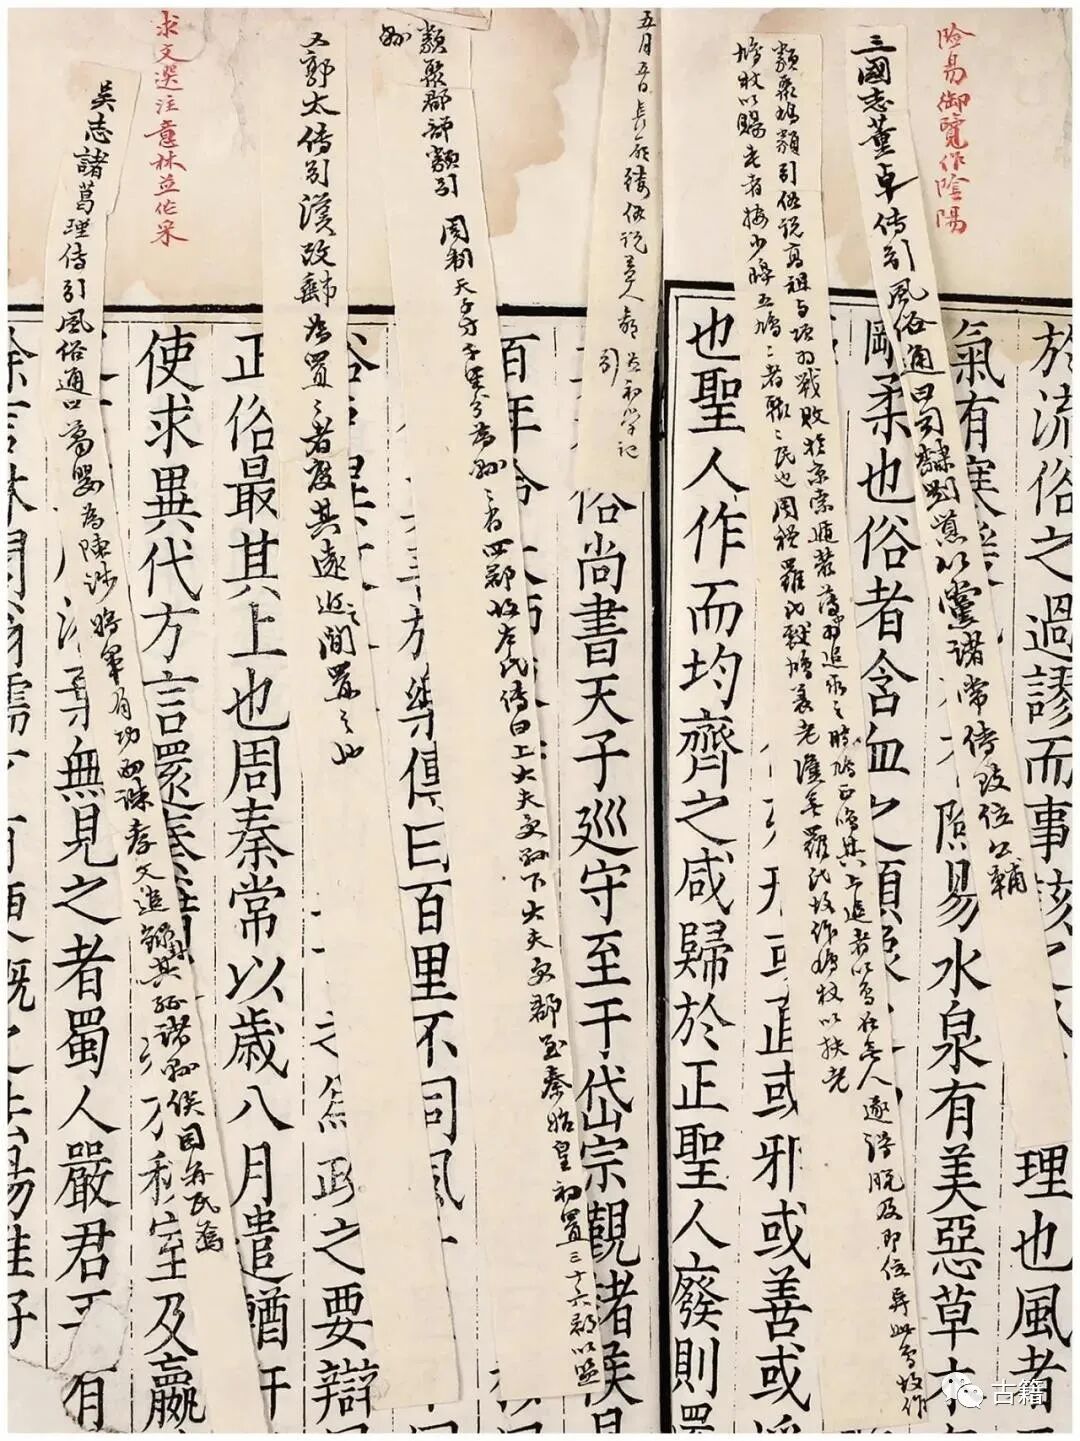 險易御覽作陰陽
三國志董卓傳引風俗通曰司隸劉嚣以黨諸常侍致位公輔
類聚鸠類引俗說高祖与項羽戰敗於京索遁叢薄羽追求之時鸠正鳴其上追者以为必無人遂得脫及即位异此鸟故作
鸠杖以賜老者按少皞五鸠鸠者聚聚民也周禮羅氏献鸠养老漢無羅氏故作鸠杖以扶老
五月五日長命縷俗說益人命
並初学記
引
類聚郡部類引
縣
周制天子方千里分为縣縣有四郡故左氏傳曰上大夫受縣下大夫受郡至秦始皇初置三十六郡以監
又郭太傳引漢改郵为置置者度其遠近之間置之也
求文選注意林並作采
吳志諸葛瑾傳引風俗通曰葛嬰为陳涉將軍有功而誅孝文追錄封其孫諸縣侯因并氏焉
於流俗之過謬而事該之
理也風者
氣有寒
險易水泉有美惡草木
剛柔也俗者含血之類
或正或邪或善或
也聖人作而均齊之咸歸於正聖人廢則還
俗尚書天子巡守至于岱宗覲諸侯見
百年
俱曰百里不同風
之要辯
正俗最其上也周秦常以歲八月遣輶軒
使求異代方言還奏
室及嬴
無見之者蜀人嚴君平有
林閭翁孺才有
古籍